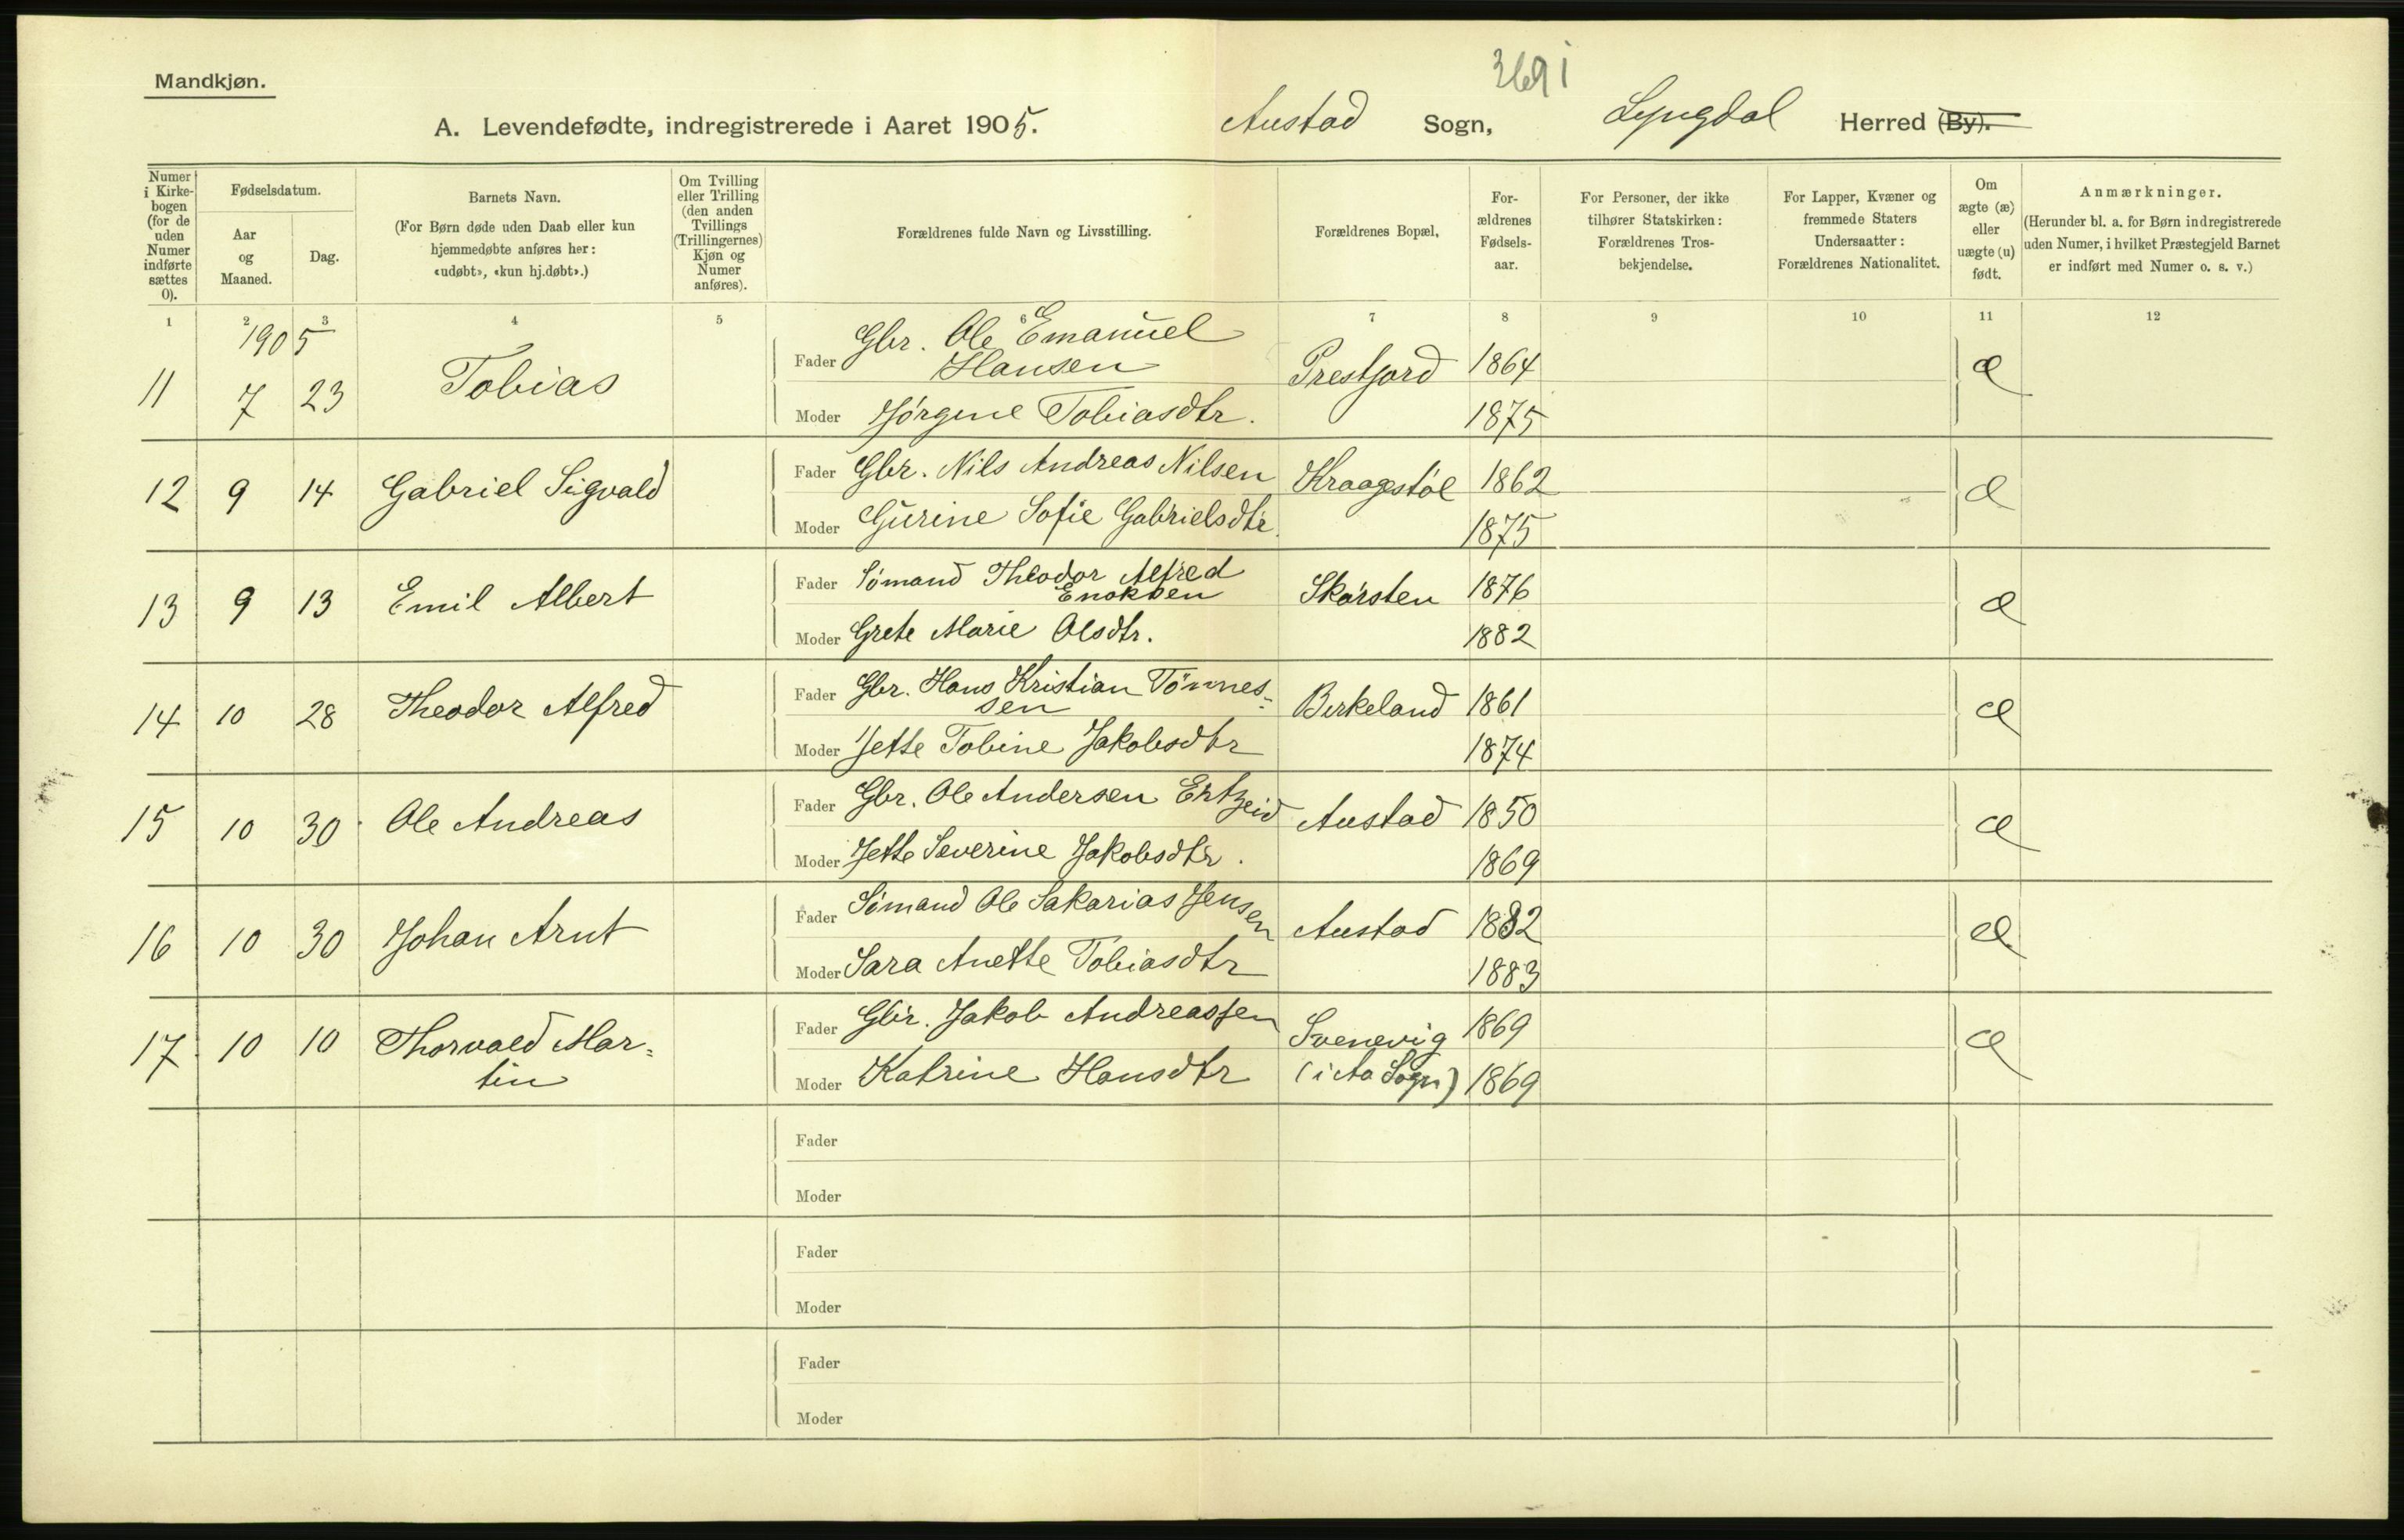 369 i
Mandkjøn.
A. Levendefødte, indregistrerede i Aaret 1905. Austad Sogn, Lyngdal Herred (By).
Numer i Kirke-bogen (for de uden Numer indførte sættes 0).
Fødselsdatum.
Aar og Maaned.
Dag.
Barnets Navn.
(For Børn døde uden Daab eller kun
hjemmedøbte anføres her:
«udøbt», «kun hj.døbt».)
Om Tvilling
eller Trilling
(den anden
Tvillings
(Trillingernes)
Kjøn og
Numer
anføres).
Forældrenes fulde Navn og Livsstilling.
Forældrenes Bopæl,
For-
ældrenes
Fødsels-
aar.
For Personer, der ikke
tilhører Statskirken:
Forældrenes Tros-
bekjendelse.
For Lapper, Kvæner og
fremmede Staters
Undersaatter:
Forældrenes Nationalitet.
Om
ægte (æ)
eller
uægte (u)
født.
Anmærkninger.
(Herunder bl. a. for Børn indregistrerede
uden Numer, i hvilket Præstegjeld Barnet
er indført med Numer o. s. v.)
1 2 3 4 5 6 7 8 9 10 11 12
1905
11 7 23 Tobias Fader Gbr. Ole Emanuel
Hansen Prestjord 1864 æ
Moder Jørgine Tobiasdtr. 1875
12 9 14 Gabriel Sigvald Fader Gbr. Nils Andreas Nilsen Kraagestøl 1862 æ
Moder Gurine Sofie Gabrielsdtr. 1875
13 9 13 Emil Albert Fader Sømand Theodor Alfred
Enoksen Skarsten 1876 æ
Moder Grete Marie Olsdtr. 1882
14 10 28 Theodor Alfred Fader Gbr. Hans Kristian Tønnes-
sen Birkeland 1861 æ
Moder Jette Tobine Jakobsdtr 1874
15 10 30 Ole Andreas Fader Gbr. Ole Andersen Ertzeid Austad 1850 æ
Moder Jette Severine Jakobsdtr. 1869
16 10 30 Johan Arnt Fader Sømand Ole Sakarias Jensen Austad 1882 æ
Moder Sara Anette Tobiasdtr 1883
17 10 10 Thorvald Mar-
tin Fader Gbr. Jakob Andreassen Svenevig 1869 æ
Moder Katrine Hansdtr (i Aa Sogn) 1869
Fader
Moder
Fader
Moder
Fader
Moder